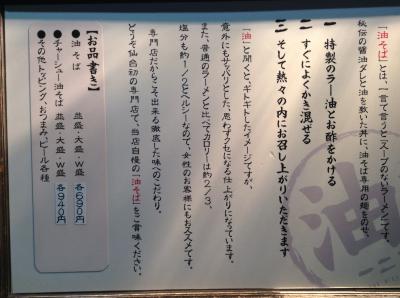 「油そば」とは、一言で言うと「スープのないラーメン」です。
秘伝の醤油ダレと油を敷いた丼に、油そば専用の麺をのせ、
一 特製のラー油とお酢をかける
二 すぐによくかき混ぜる
三 そして熱々の内にお召し上がりいただきます
「油」と聞くと、ギトギトしたイメージですが、
意外にもサッパリとした、思わずクセになる仕上がりになっています。
また、普通のラーメンと比べてカロリーは約2/3、
塩分も約1/2とヘルシーなので、女性のお客様にもおススメです。
専門店だからこそ出来る徹底した味へのこだわり。
どうぞ仙台初の専門店で、当店自慢の「油そば」をご賞味ください。
【お品書き】
●油そば 並盛・大盛・W盛 各690円
●チャーシュー油そば 並盛・大盛・W盛 各940円
●その他トッピング、おつまみ、ビール各種
油